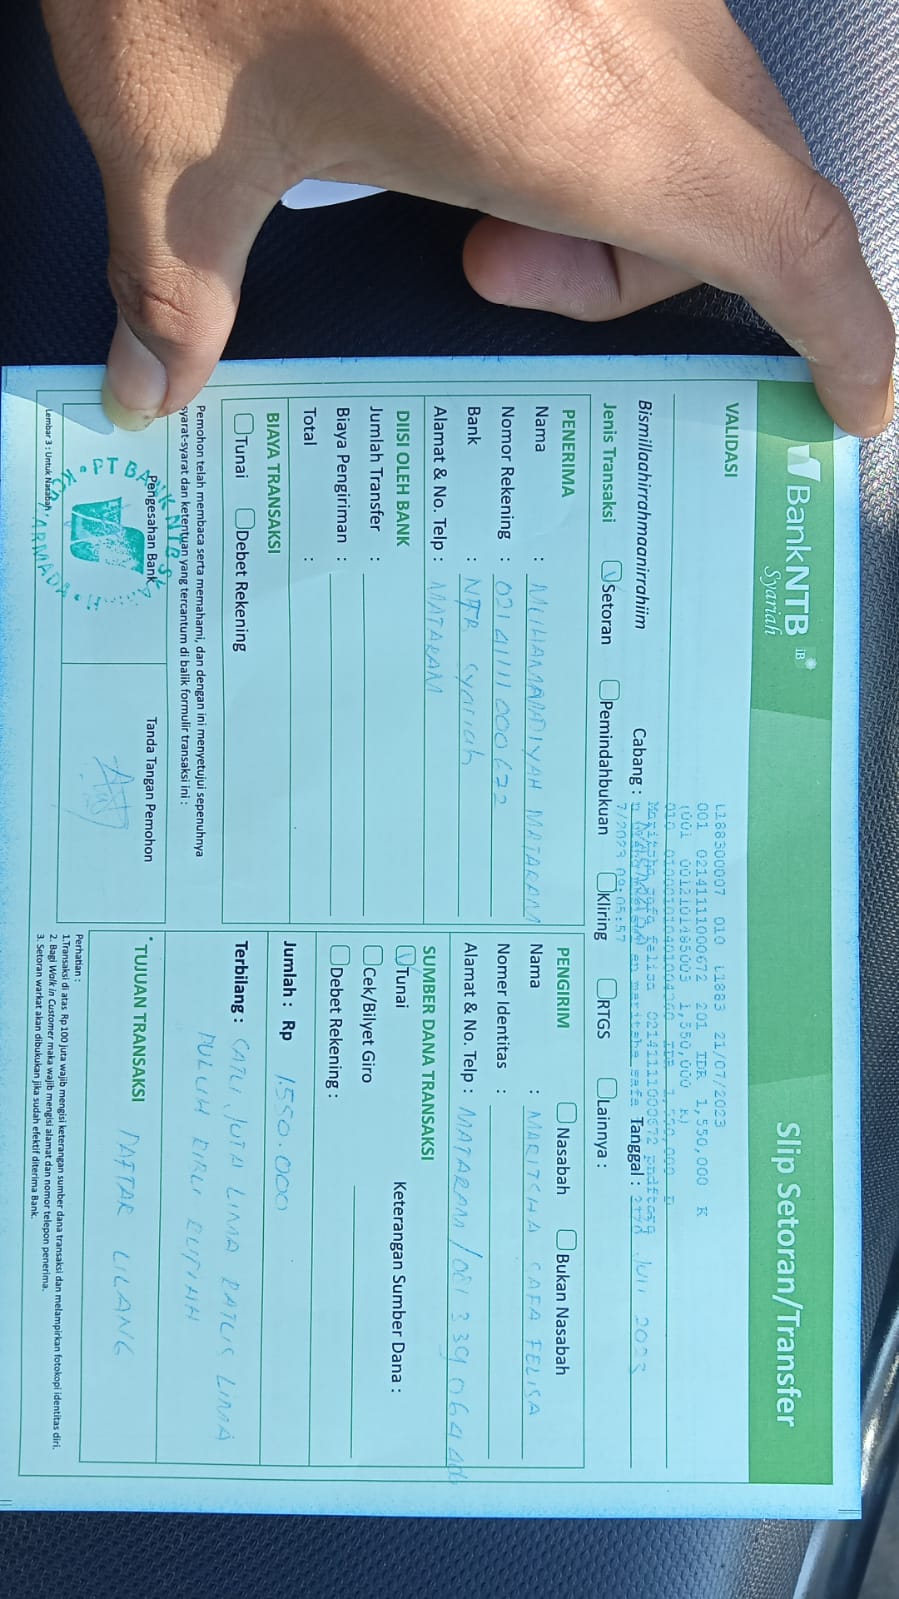 BankNTB
Syariah
iB
Slip Setoran/Transfer
VALIDASI
L188300007 010 L1883 21/07/2023
001 02141111000672 201 IDR 1,550,000 K
(001 0012101485003 1,550,000 K)
010 IDR 1,550,000 D
Maritsha safa felisa 02141111000672 pndftarn
maritsha safa
7/2023 09:05:57
Bismillaahirrahmaanirrahiim
Cabang :
Tanggal : Juli 2023
Jenis Transaksi
Setoran
Pemindahbukuan
Kliring
RTGS
Lainnya :
PENERIMA
Nama : MUHAMADIYAH MATARAM
Nomor Rekening : 02141111000672
Bank : NTB Syariah
Alamat & No. Telp : MATARAM
PENGIRIM
Nasabah
Bukan Nasabah
Nama : MARITSHA SAFA FELISA
Nomer Identitas :
Alamat & No. Telp : MATARAM /
DIISI OLEH BANK
Jumlah Transfer :
Biaya Pengiriman :
Total :
SUMBER DANA TRANSAKSI
Tunai
Keterangan Sumber Dana :
Cek/Bilyet Giro
Debet Rekening :
BIAYA TRANSAKSI
Tunai
Debet Rekening
Jumlah : Rp 1.550.000
Terbilang : SATU JUTA LIMA RATUS LIMA
PULUH RIBU RUPIAH
Pemohon telah membaca serta memahami, dan dengan ini menyetujui sepenuhnya
syarat-syarat dan ketentuan yang tercantum di balik formulir transaksi ini :
Pengesahan Bank
Tanda Tangan Pemohon
PT BANK NTB
* TUJUAN TRANSAKSI
DAFTAR ULANG
Lembar 3 : Untuk Nasabah
Perhatian :
1.Transaksi di atas Rp 100 juta wajib mengisi keterangan sumber dana transaksi dan melampirkan fotokopi identitas diri.
2. Bagi Walk in Customer maka wajib mengisi alamat dan nomor telepon penerima.
3. Setoran warkat akan dibukukan jika sudah efektif diterima Bank.